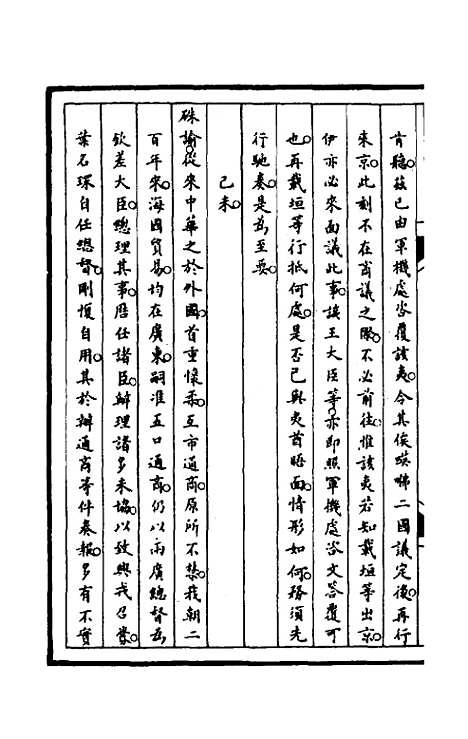 肯聽。茲已由軍機處咨覆該夷。令其俟𠸄咈二國議定後。再行
來京。此刻不在商議之際。不必前往。惟該夷若知載垣等出京。
伊亦必來面議此事。該王大臣等。亦即照軍機處咨文答覆可
也。再載垣等行抵何處。是否已與夷酋晤面。情形如何。務須先
行馳奏。是為至要。
己未
硃諭。從來中華之於外國。首重懷柔。互市通商。原所不禁。我朝二
百年來。海國貿易。均在廣東。嗣准五口通商。仍以兩廣總督為
欽差大臣。總理其事。歷任諸臣。辦理諸多未協。以致興戎召釁。
葉名琛自任總督。剛愎自用。其於辦通商等件奏報。多有不實